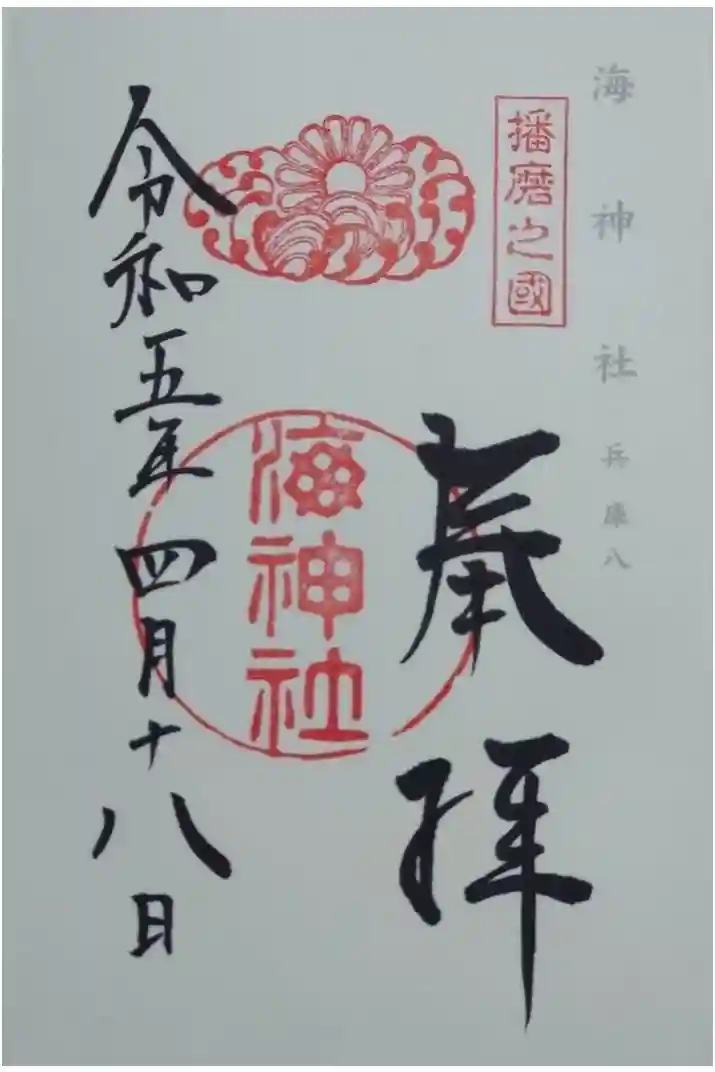 海神社 兵庫八
播磨之國
奉拝
海神社
令和五年四月十八日